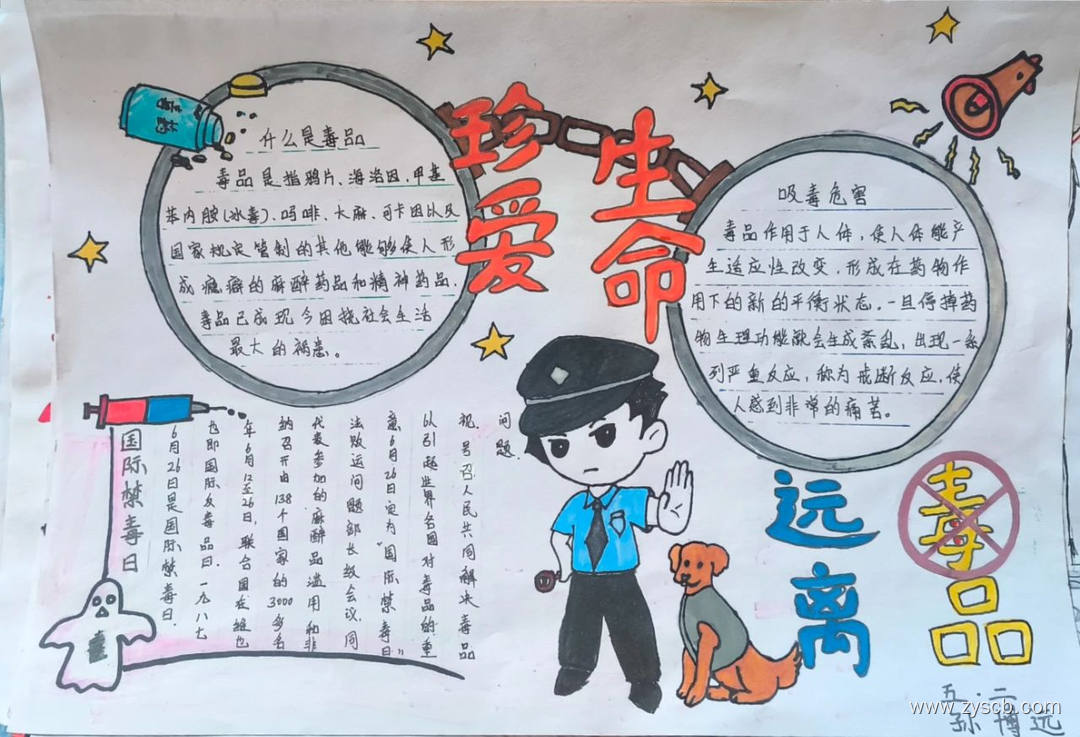 珍爱
生命
毒药
什么是毒品
毒品是指鸦片、海洛因、甲基
苯内胺(冰毒)、吗啡、大麻、可卡因以及
国家规定管制的其他能够使人形
成瘾癖的麻醉药品和精神药品.
毒品已成现今困挠社会生活
最大的祸患。
吸毒危害
毒品作用于人体,使人体能产
生适应性改变,形成在药物作
用下的新的平衡状态。一旦停掉药
物生理功能就会生成紊乱,出现一系
列严重反应,称为戒断反应,使
人感到非常的痛苦。
国际禁毒日
6月26日是国际禁毒日.
也即国际反毒品日.一九八七
年6月12至26日,联合国在维也
纳召开由138个国家的3000多名
代表参加的麻醉品滥用和非
法贩运问题部长级会议.同
意6月26日定为"国际禁毒日"
以引起世界各国对毒品的重
视,号召人民共同解决毒品
问题.
毒
远离
毒品
五.二
孙博远
www.zyscb.com